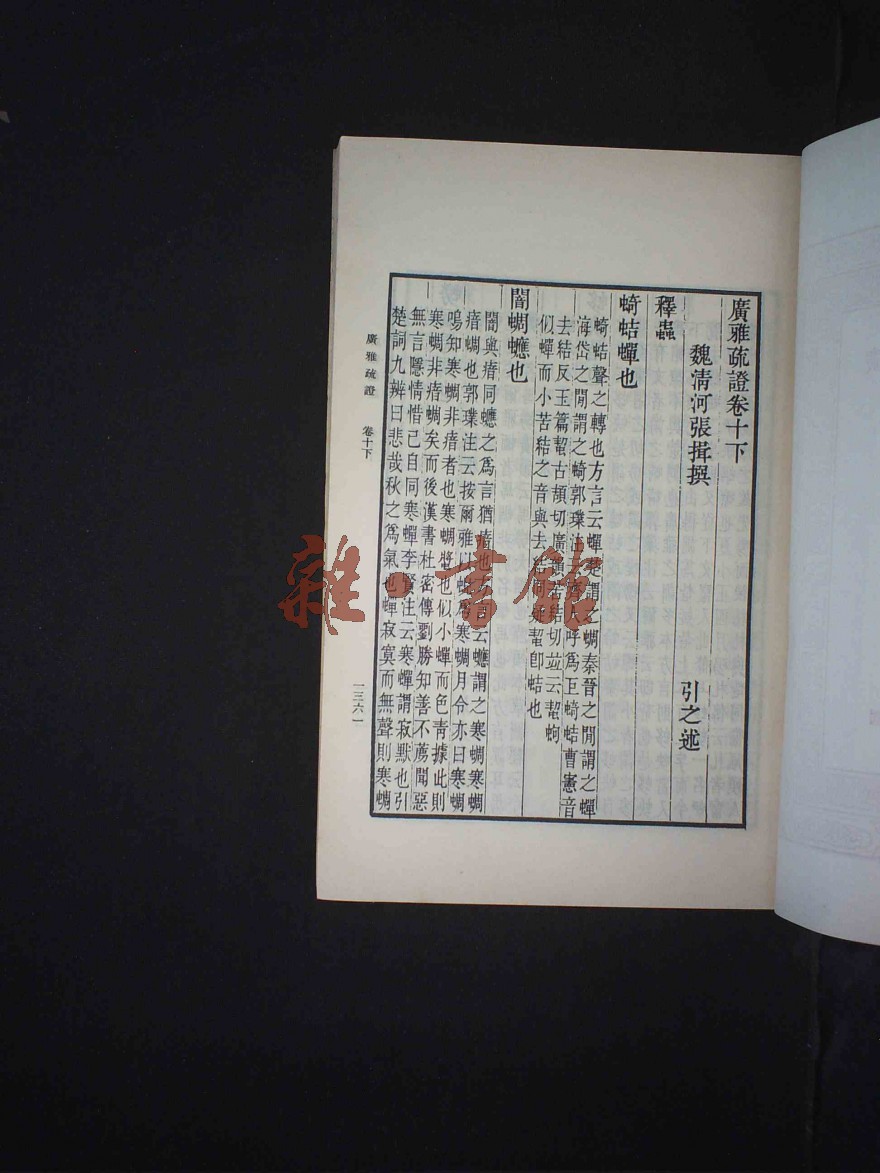 廣雅疏證卷十下
魏清河張揖撰
引之述
釋蟲
蛥蛣蟬也
蛥蛣聲之轉也方言云蟬楚謂之蜩秦晉之閒謂之蟬
海岱之閒謂之蛥郭璞注云齊人呼爲巨蛥蛣曹憲音
去結反玉篇蛪古頡切廣韻苦結切竝云蛪蚼
似蟬而小苦結之音與去結同疑蛪卽蛣也
闇蜩蟪也
闇與瘖同蟪之爲言猶瘖也方言云蟪謂之寒蜩寒蜩
瘖蜩也郭璞注云按爾雅以蜺爲寒蜩月令亦曰寒蜩
鳴知寒蜩非瘖者也寒蜩螿也似小蟬而色靑據此則
寒蜩非瘖蜩矣而後漢書杜密傳劉勝知善不薦聞惡
無言隱情惜己自同寒蟬李賢注云寒蟬謂寂默也引
楚詞九辨曰悲哉秋之爲氣也蟬寂寞而無聲則寒蜩
廣雅疏證 卷十下
一三六一
雜·書館